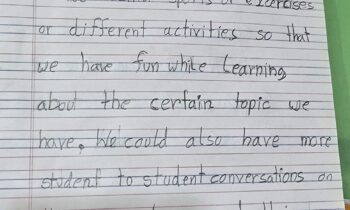 sports or exercises
or different activities so that
we have fun while learning
about the certain topic we
have. We could also have more
student to student conversations on